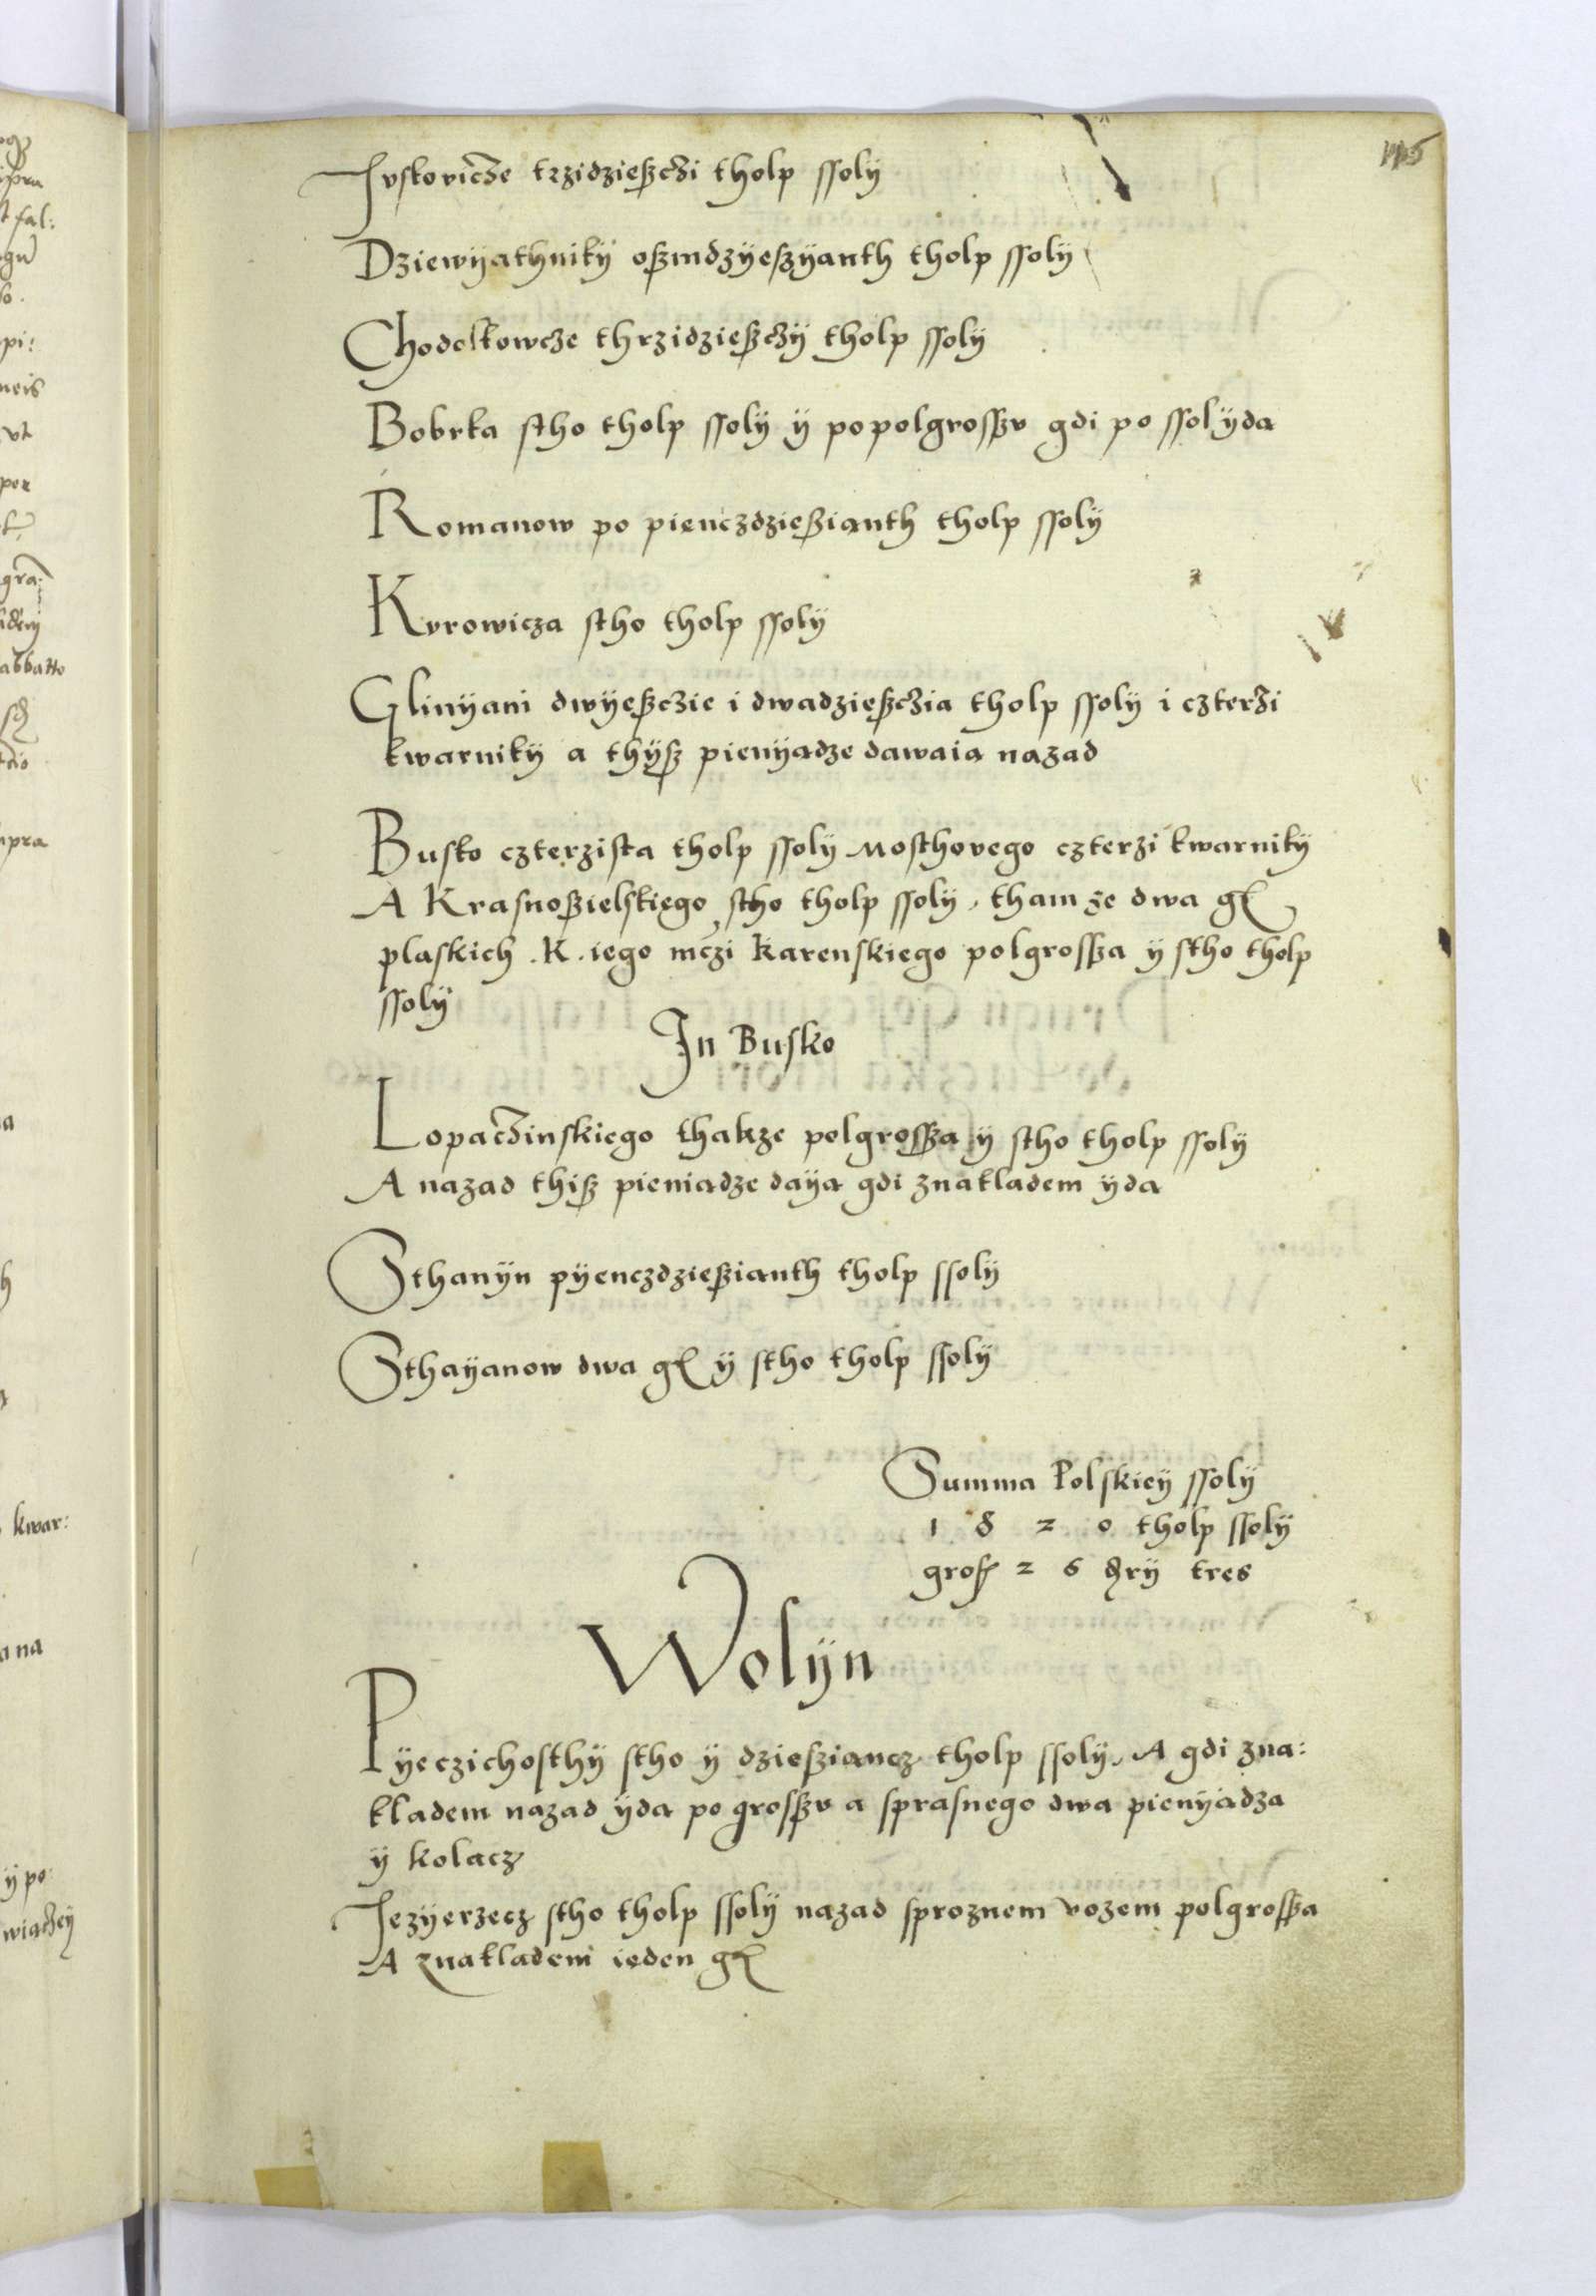 115
Jvskoviche trzidzieszczi tholp ssoly
Dziewyathniky oszmdzyeszyanth tholp ssoly
Chodoskowcze thrzidzieszczy tholp ssoly
Bobrka stho tholp ssoly y popolgrosszv gdi po ssol yda
Romanow po pienczdziesziąnth tholp ssoly
Kvrowicza stho tholp ssoly
Glinyani dwyeszczie i dwadzieszczia tholp ssoly i czterzi
kwarniky a thysz pienyadze dawaia nazad
Busko czterzista tholp ssoly Mosthovego czterzi kwarniky
A Krasnoszielskiego stho tholp ssoly, tham ze dwa gr
plaskich . K . iego mczi Karenskiego polgrossza y stho tholp
ssoly
Jn Busko
Lopaczinskiego thakze polgrossza y stho tholp ssoly
A nazad thisz pieniadze daya gdi znakladem yda
Sthanyn pyenczdziesziąnth tholp ssoly
Sthayanow dwa gr y stho tholp ssoly
Summa Polskiey ssoly
1 8 2 0 tholp ssoly
gross 2 6 tres
Wolyn
Pyeczichosthy stho y dziesziancz tholp ssoly, A gdi zna:
kladem nazad yda po grosszv a sprasnego dwa pienyadza
y kolacz
Jezyerzecz stho tholp ssoly nazad sproznem vozem polgrossza
A znakladem ieden gr
kwar: